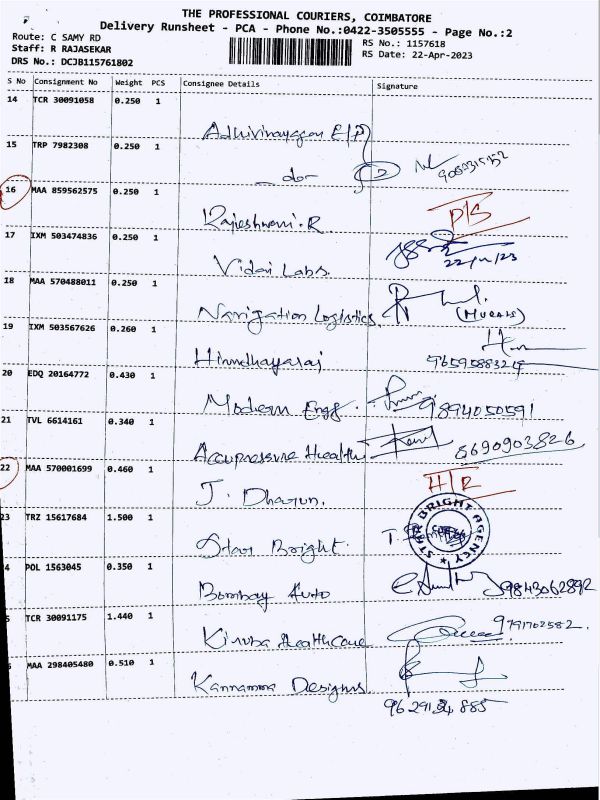 THE PROFESSIONAL COURIERS, COIMBATORE
Delivery Runsheet - PCA - Phone No.:0422-3505555 - Page No.:2
Route: C SAMY RD
RS No.: 1157618
Staff: R RAJASEKAR
RS Date: 22-Apr-2023
DRS No.: DCJB115761802
S No Consignment No Weight PCS Consignee Details Signature
14 TCR 30091058 0.250 1
Adhivinayagan E/P
15 TRP 7982308 0.250 1
do 2
16 MAA 859562575 0.250 1
Rajeshwari.R
17 IXM 503474836 0.250 1
Vidai Labs. 22/4/23
18 MAA 570488011 0.250 1
Navigation Logistics. (MURALI)
19 IXM 503567626 0.260 1
20 EDQ 20164772 0.430 1
Modern Engg. 9894050591
21 TVL 6614161 0.340 1
Accupressure Health 8690903826
22 MAA 570001699 0.460 1
J. Dharun.
23 TRZ 15617684 1.500 1
Star Bright. STAR BRIGHT AGENCY
4 POL 1563045 0.350 1
Bombay Auto 9843062892
5 TCR 30091175 1.440 1
Kiruba Healthcare 9791702582.
MAA 298405480 0.510 1
Kannamma Designs